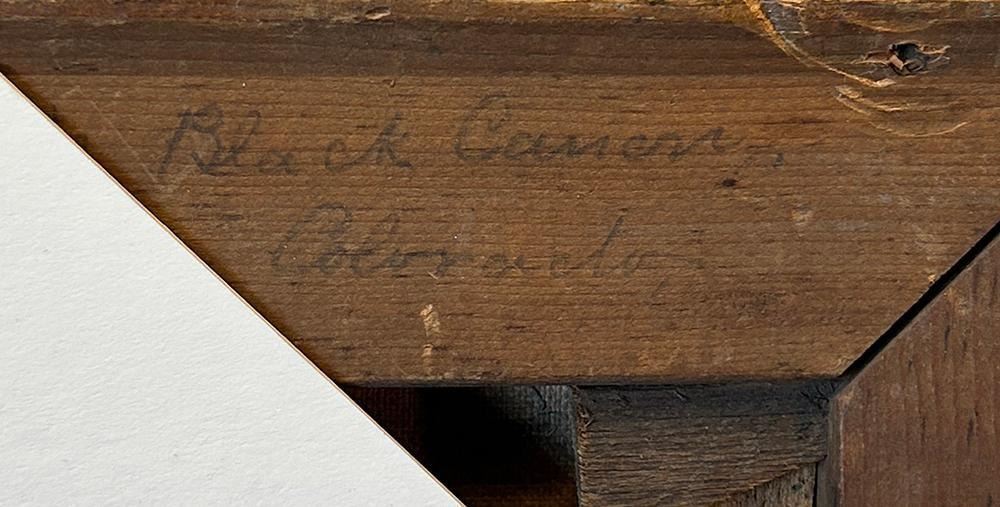 Black Canon,
Colorado